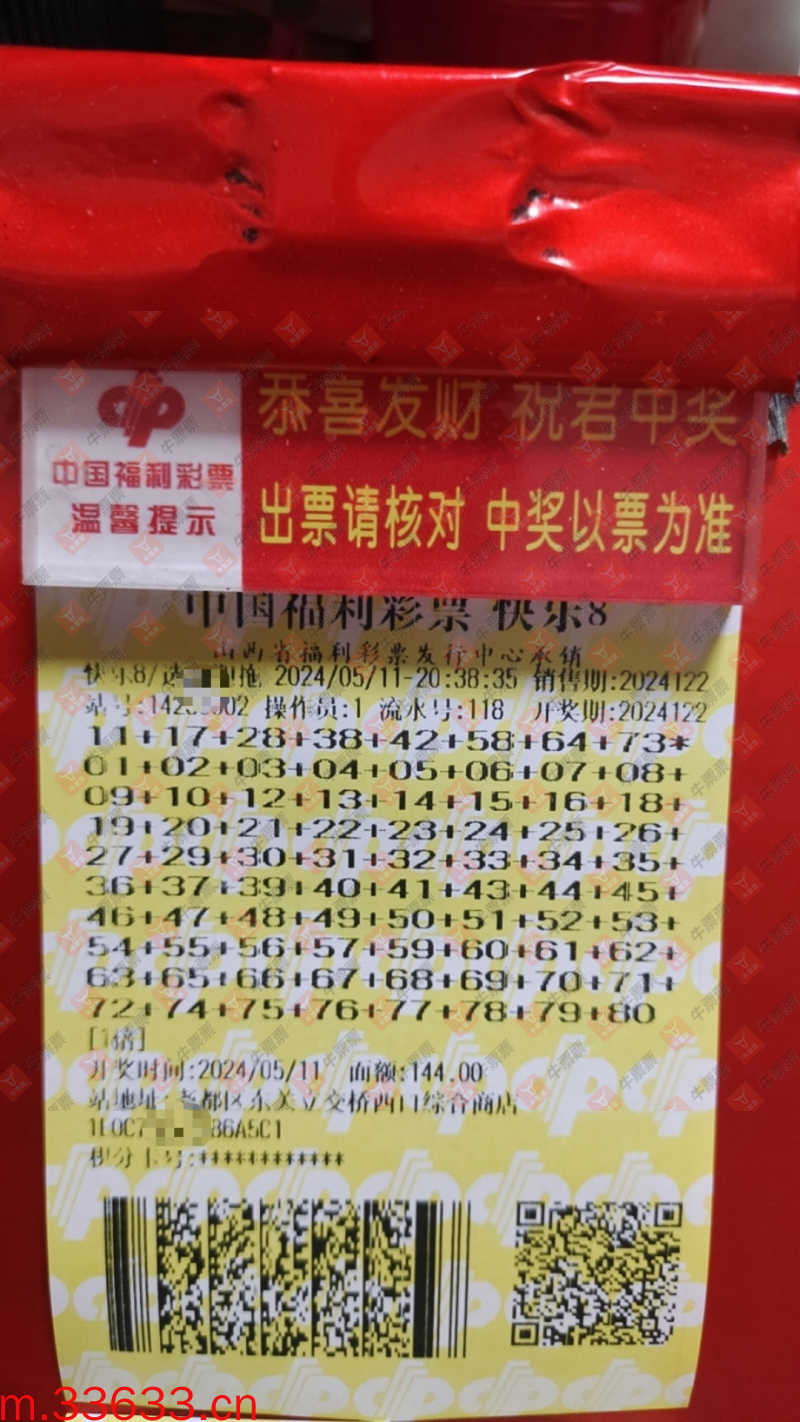 恭喜发财 祝君中奖
中国福利彩票
温馨提示
出票请核对 中奖以票为准
中国福利彩票 快乐8
山西省福利彩票发行中心承销
快乐8/选 胆拖 2024/05/11-20:38:35 销售期:2024122
站号:142 02 操作员:1 流水号:118 开奖期:2024122
11+17+28+38+42+58+64+73*
01+02+03+04+05+06+07+08+
09+10+12+13+14+15+16+18+
19+20+21+22+23+24+25+26+
27+29+30+31+32+33+34+35+
36+37+39+40+41+43+44+45+
46+47+48+49+50+51+52+53+
54+55+56+57+59+60+61+62+
63+65+66+67+68+69+70+71+
72+74+75+76+77+78+79+80
[1倍]
开奖时间:2024/05/11 面额:144.00
站地址:尧都区东关立交桥西口综合商店
86A5C1
积分卡号:************
m.33633.cn
牛票票